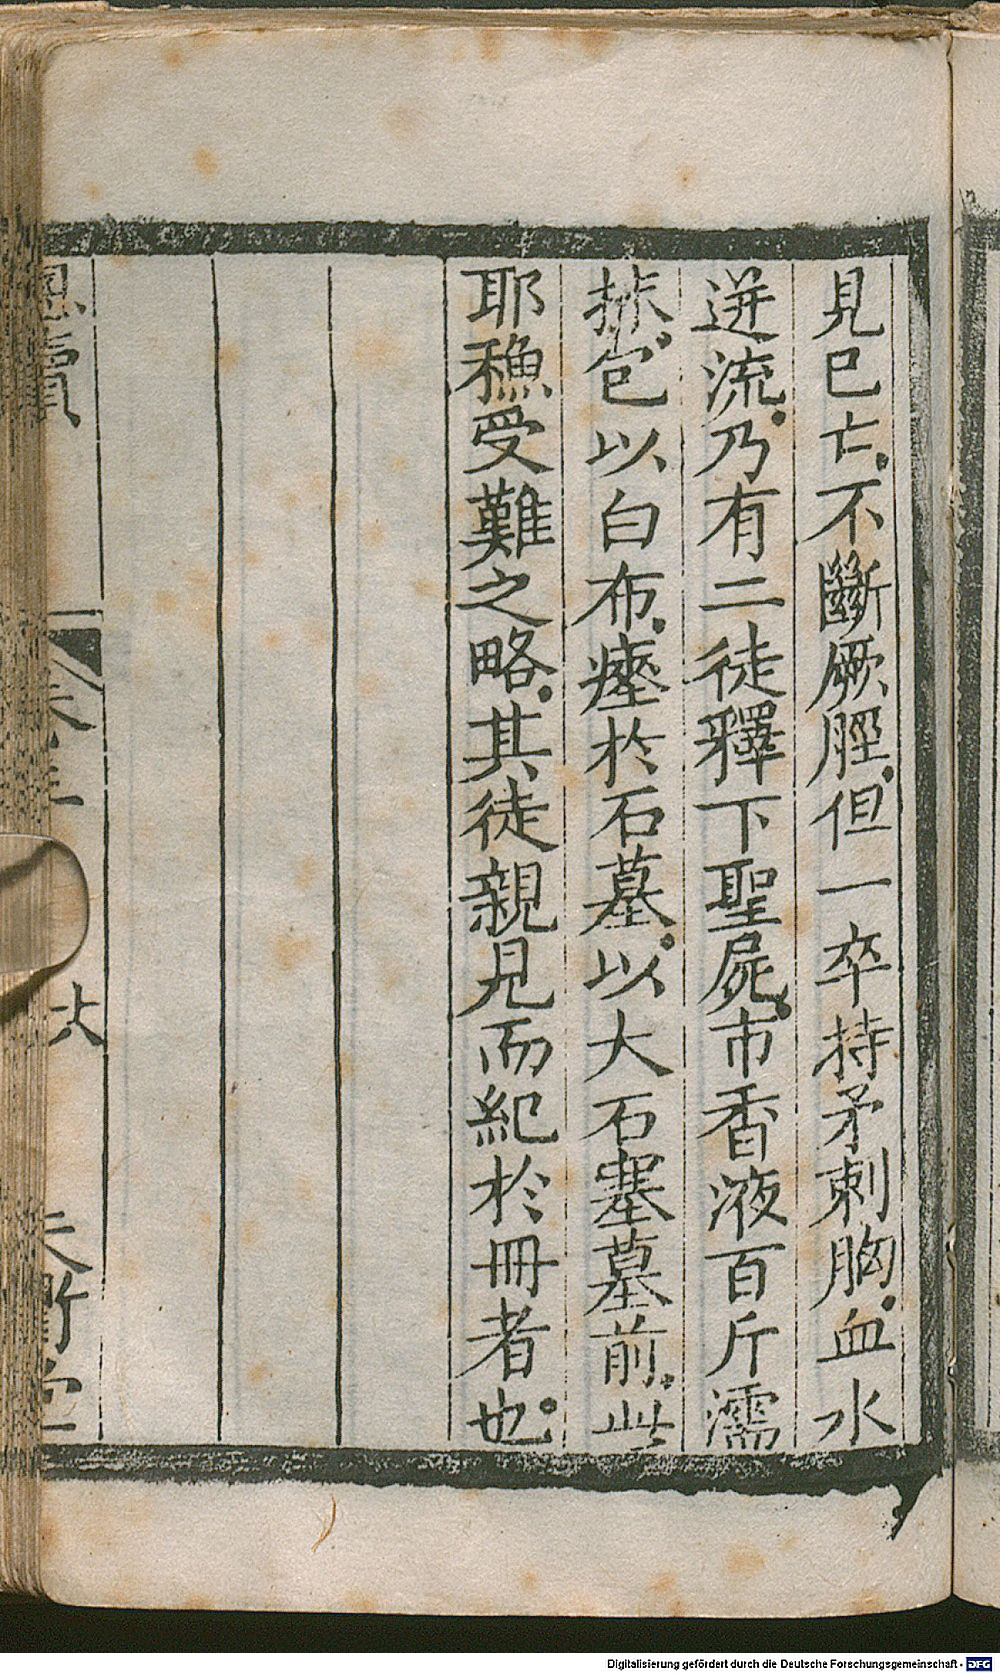 見已亡。不斷厥脛。但一卒持矛刺胸。血水
迸流。乃有二徒釋下聖屍。市香液百斤濡
抹。包以白布。瘞於石墓。以大石塞墓前。此
耶穌受難之略。其徒親見而紀於冊者也。
卷三 六 天衢堂
Digitalisierung gefördert durch die Deutsche Forschungsgemeinschaft - DFG